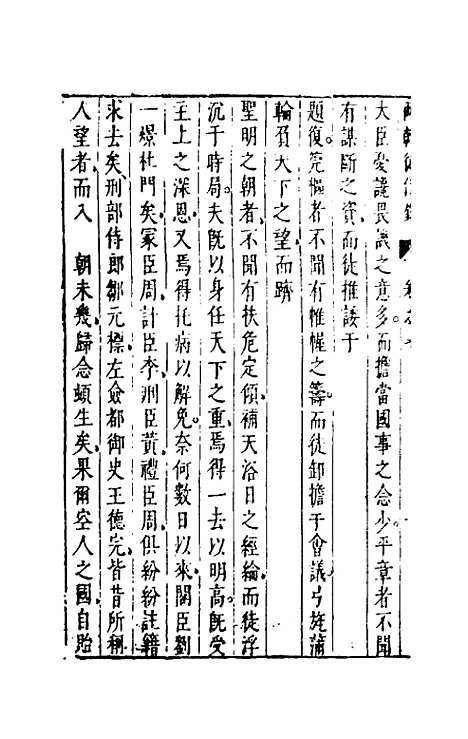 兩朝從信錄
大臣憂讒畏譏之意多而擔當國事之念少平章者不聞
有謀斷之資而徒推諉于
題復筦樞者不聞有帷幄之籌而徒卸擔于會議弓旌蒲
輪負天下之望而躋
聖明之朝者不聞有扶危定傾補天浴日之經綸而徒浮
沉于時局夫既以身任天下之重焉得一去以明高既受
主上之深恩又焉得托病以解免奈何數日以來閣臣劉
一燝杜門矣冢臣周計臣李刑臣黃禮臣周俱紛紛註籍
求去矣刑部侍郎鄒元標左僉都御史王德完皆昔所稱
人望者而入　朝未幾歸念頓生矣果爾空人之國自貽